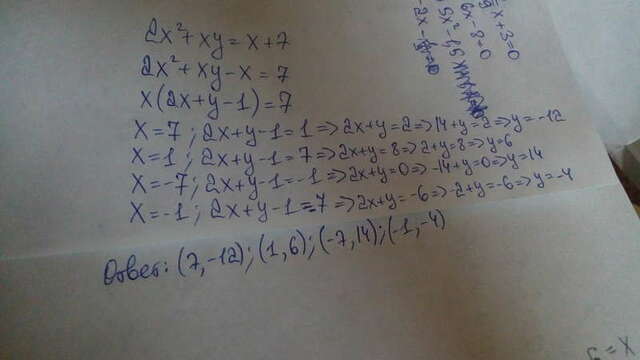 2x²+xy=x+7
2x²+xy-x=7
x(2x+y-1)=7
x=7; 2x+y-1=1=>2x+y=2=>14+y=2=>y=-12
x=1; 2x+y-1=7=>2x+y=8=>2+y=8=>y=6
x=-7; 2x+y-1=-1=>2x+y=0=>-14+y=0=>y=14
x=-1; 2x+y-1=-7=>2x+y=-6=>-2+y=-6=>y=-4
Ответ: (7,-12); (1,6); (-7,14); (-1,-4)
x+3=0
6x-8=0